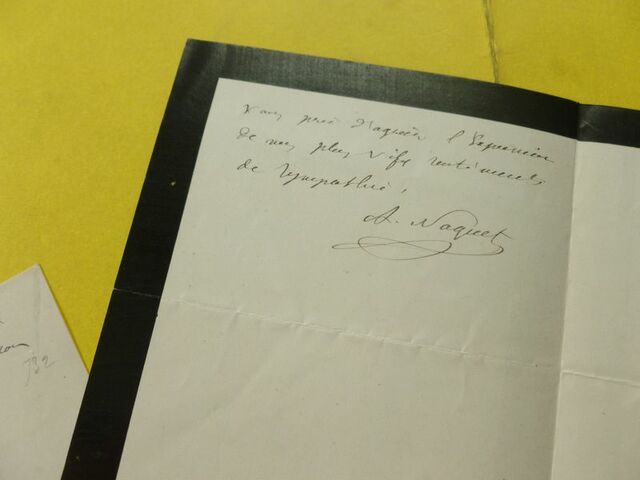 vous prie d'agréer l'expression
de mes plus vifs sentiments
de sympathie,
A. Naquet
132